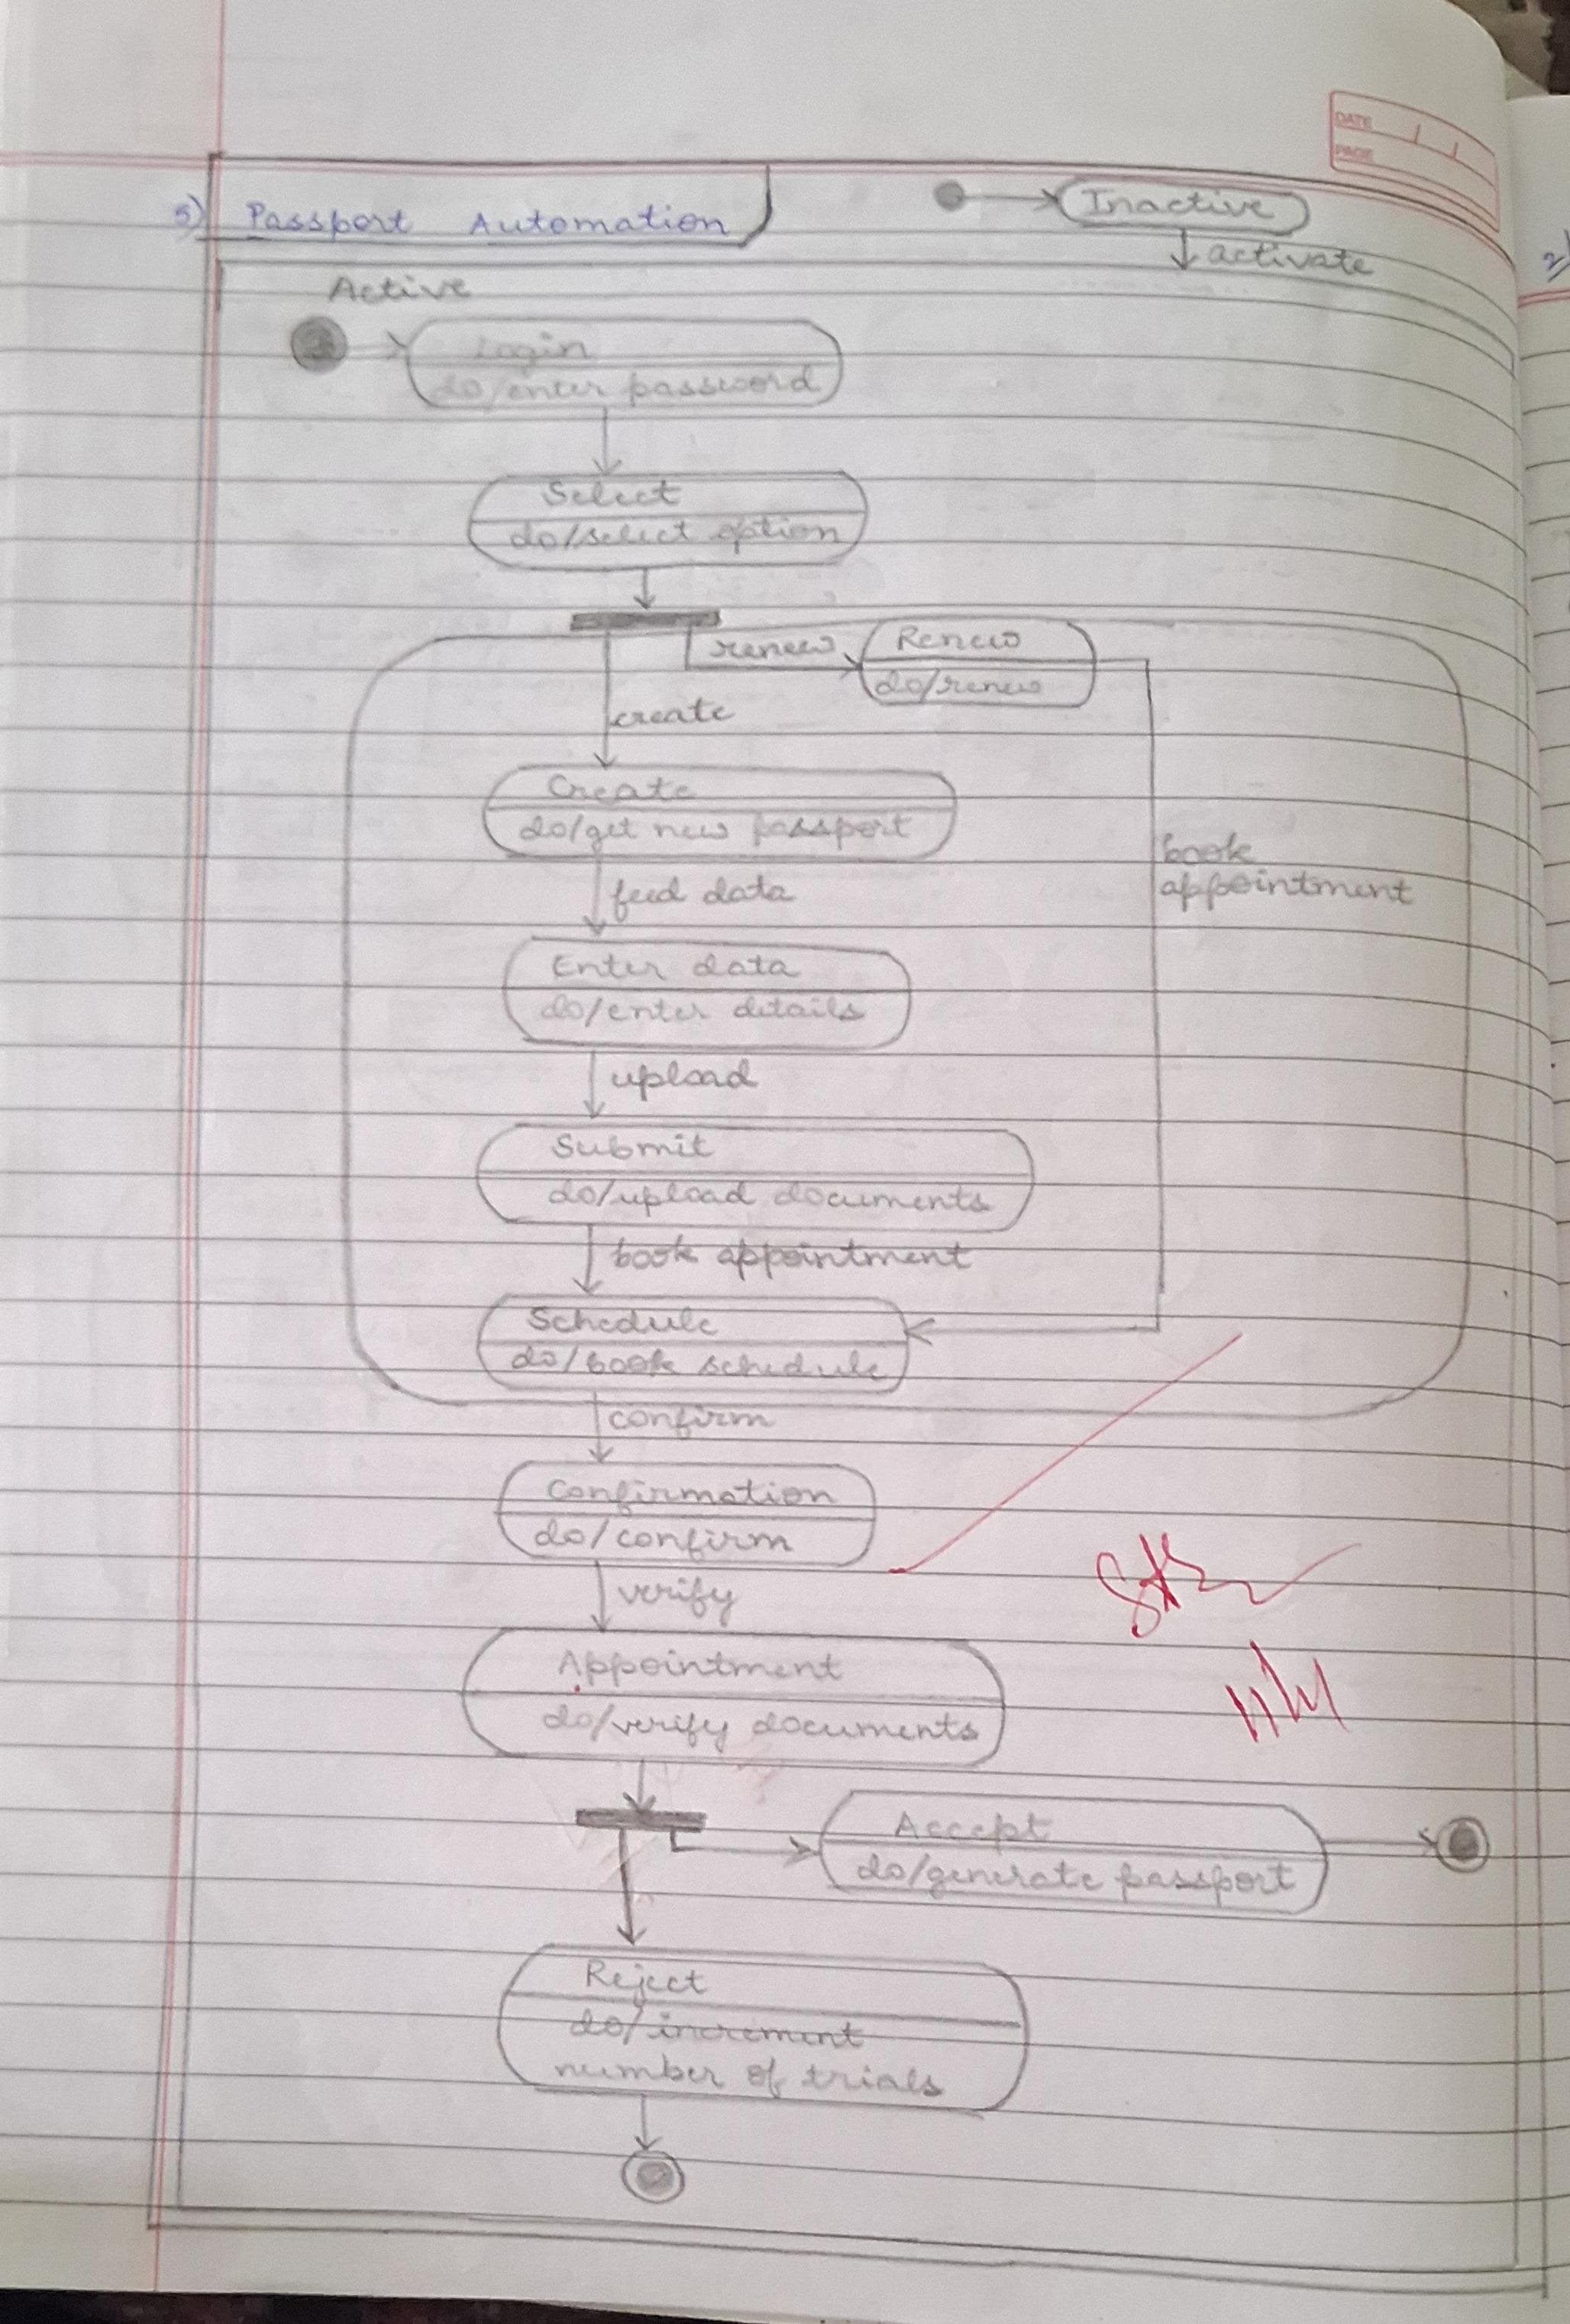 DATE
PAGE
5) Passport Automation
Inactive
activate
Active
Login
do/enter password
Select
do/select option
renew
Renew
do/renew
create
Create
do/get new passport
feed data
book
appointment
Enter data
do/enter details
upload
Submit
do/upload documents
book appointment
Schedule
do/book schedule
confirm
Confirmation
do/confirm
verify
Appointment
do/verify documents
Accept
do/generate passport
Reject
do/increment
number of trials
2)